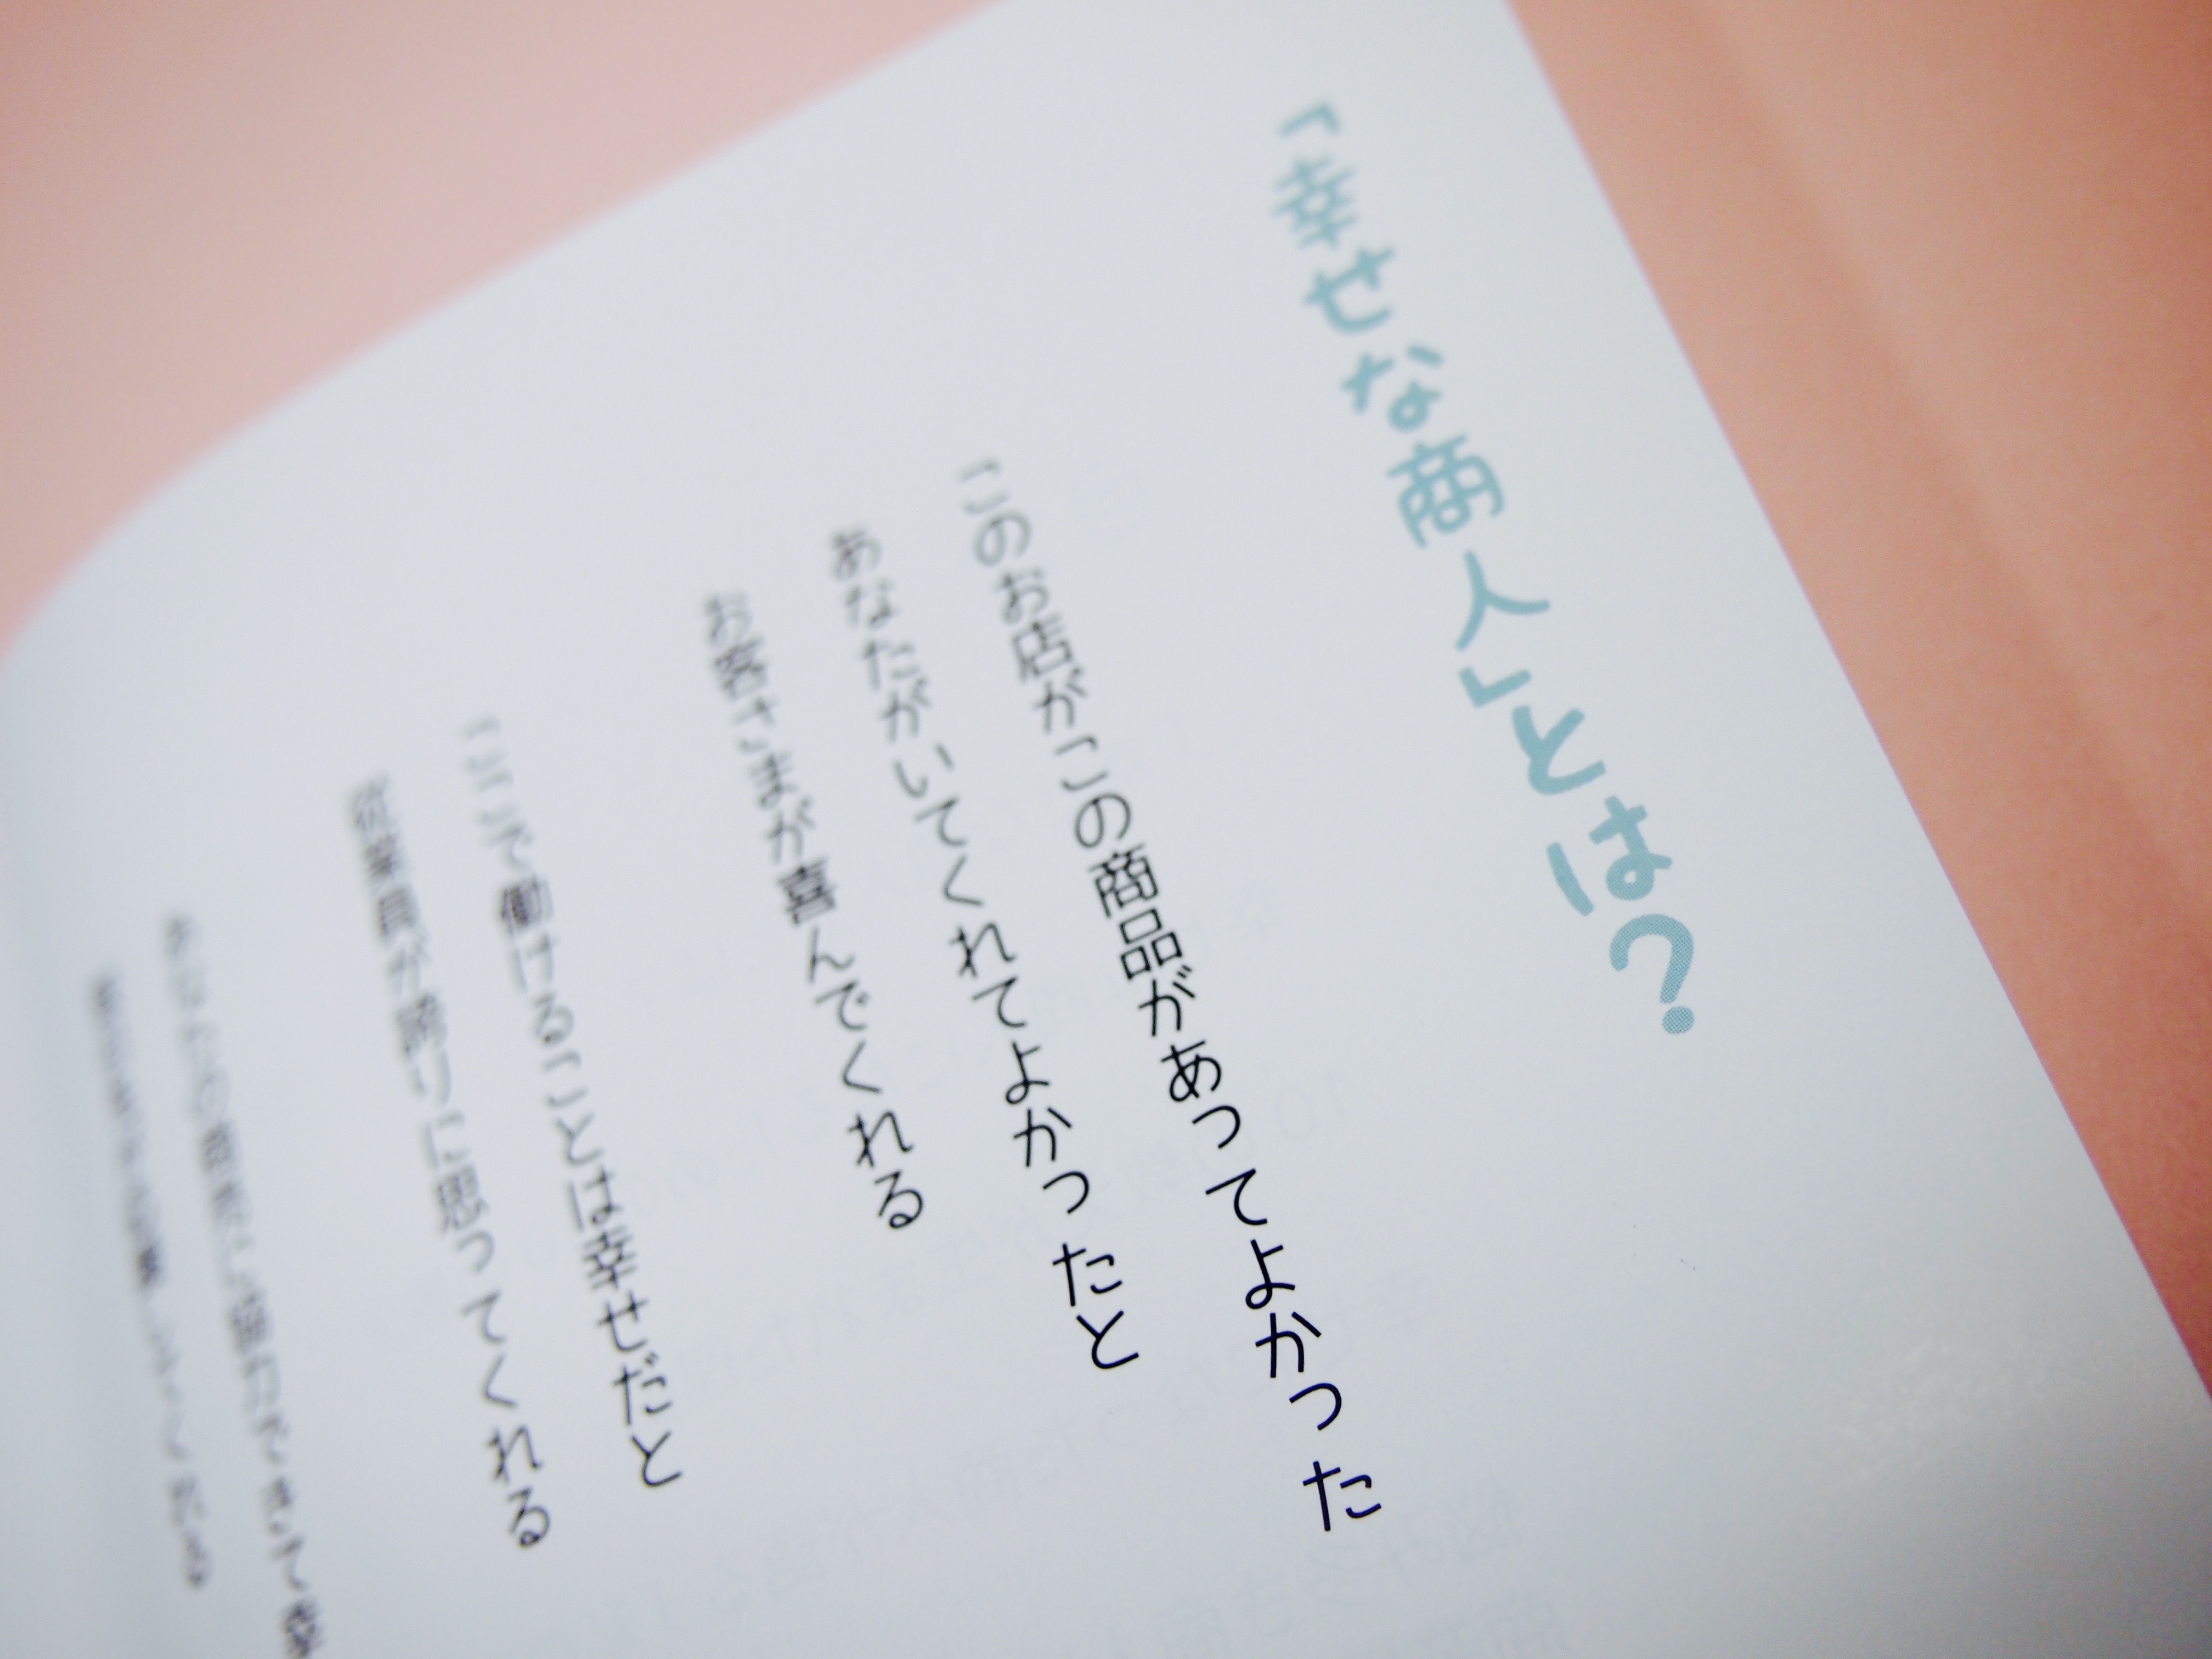 「幸せな商人」とは?
このお店がこの商品があってよかった
あなたがいてくれてよかったと
お客さまが喜んでくれる
ここで働けることは幸せだと
従業員が誇りに思ってくれる
あなたの商売に協力できて幸